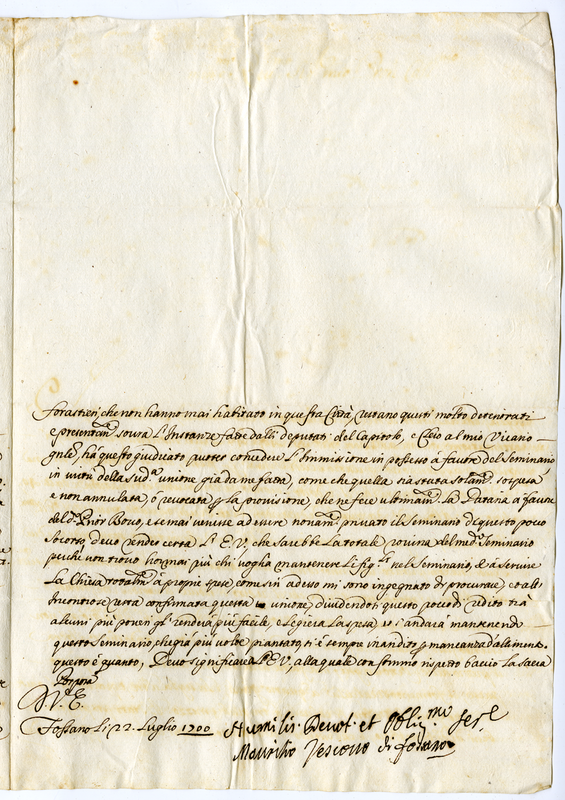 forastieri, che non hanno mai habitato in questa Città, restano questi molto deteriorati
e presentem.te soura L'Instanze fatte dalli deputati del Capitolo, e Clero al mio Vicario
gnle, ha questo giudicato poter concedere L'Immissione in possesso à fauore del Seminario
in uirtù della sud.a unione già da me fatta, come che quella sia stata solam.te sospesa
e non annullata, ò reuocata p la prouisione, che ne fece ultimam.te la Dataria a fauore
del d.o Prior Bouo, e se mai uenisse ad essere nouam.te priuato il Seminario di questo poco
soccorso, deuo render certa L'E.V., che sarebbe La totale rouina del med.o Seminario
perche non trouo hormai più chi uoglia mantenere Li figli nel Seminario, et à seruire
La Chiesa à proprie spese, come sin adesso mi sono ingegnato di procurare, et all'
Incontro se uerrà confirmata questa unione, diuidendosi questo poco di reddito trà
alcuni più poueri gl' renderà più facile, e legiera La spesa, e si andarà mantenendo
questo Seminario, che già più uolte piantato, si è sempre inaridito p mancanza d'alimento.
questo è quanto, Deuo significare à L'E.V., alla quale con sommo rispetto bacio La sacra
Porpora
D. V. E.
Fossano Li 22. Luglio 1700
Humilis. Deuot. et Oblig.mo Ser.e
Maurilio Vescouo di fossano